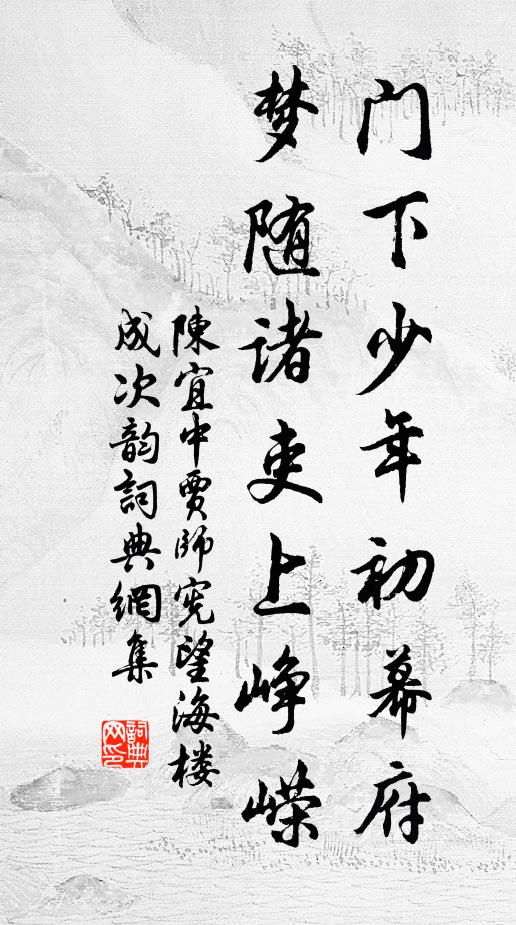 门下少年初幕府
梦随诸吏上峥嵘
陳宜中賈師宪望海楼
成次韵詞典網集
詞典
网印